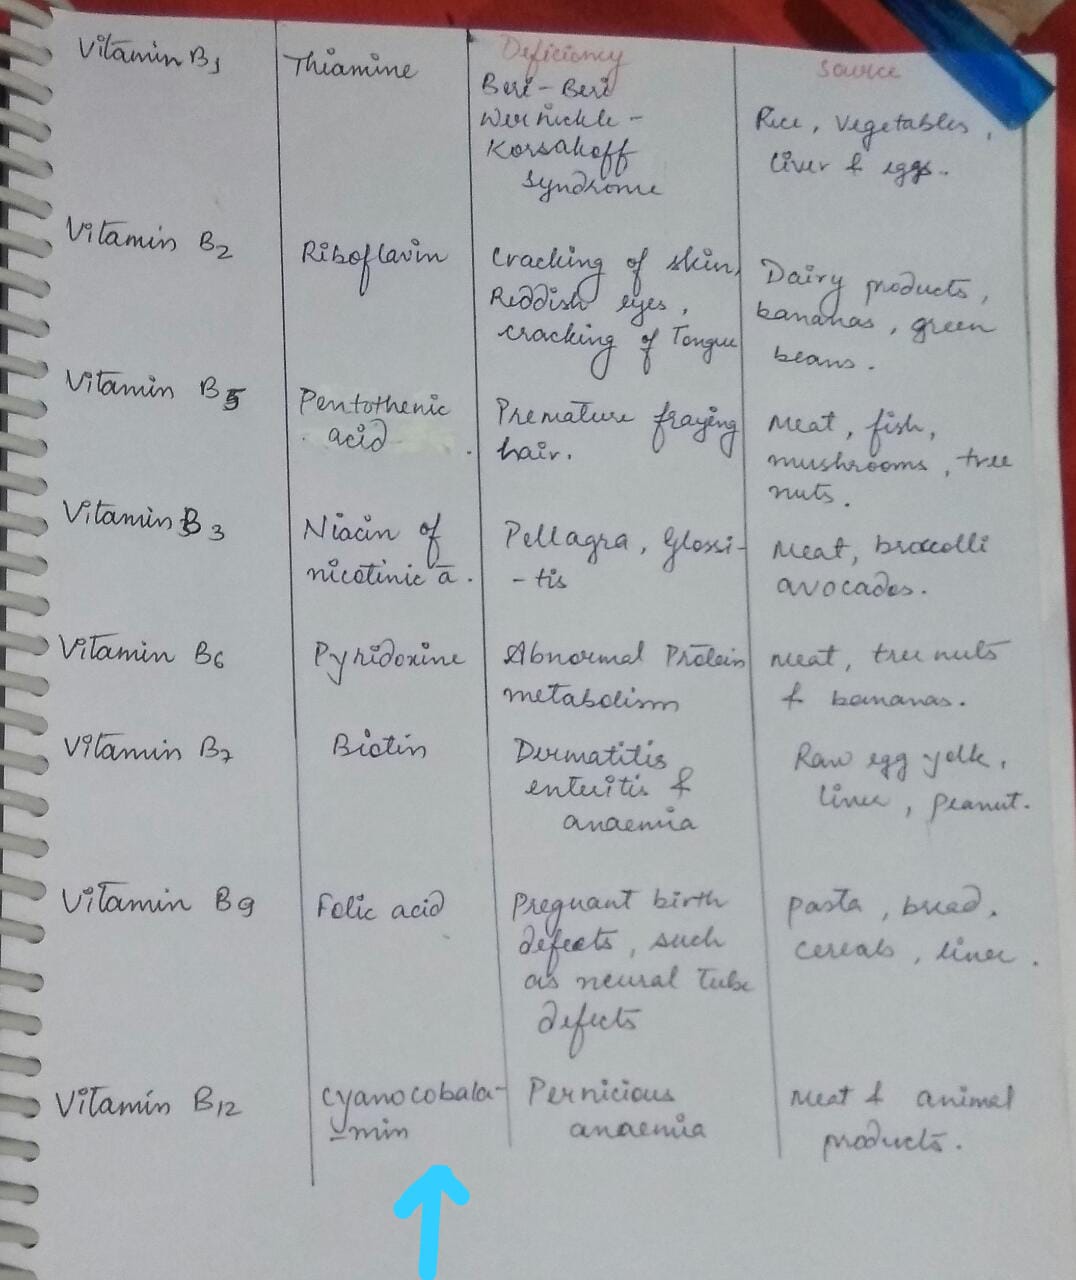 Deficiency
Source
Vitamin B1
Thiamine
Beri-Beri
Wernickle-
Korsakoff
Syndrome
Rice, vegetables,
liver & eggs.
Vitamin B2
Riboflavin
Cracking of skin,
Reddish eyes,
cracking of Tongue
Dairy products,
bananas, green
beans.
Vitamin B5
Pentothenic
acid
Premature fraying
hair.
Meat, fish,
mushrooms, tree
nuts.
Vitamin B3
Niacin of
nicotinic a.
Pellagra, Glossi-
-tis
Meat, broccolli
avocados.
Vitamin B6
Pyridoxine
Abnormal Protein
metabolism
Meat, tree nuts
& bananas.
Vitamin B7
Biotin
Dermatitis
enteritis &
anaemia
Raw egg yolk,
liver, peanut.
Vitamin B9
Folic acid
Pregnant birth
defects, such
as neural tube
defects
pasta, bread,
cereals, liver.
Vitamin B12
Cyanocobala-
-min
Pernicious
anaemia
Meat & animal
products.